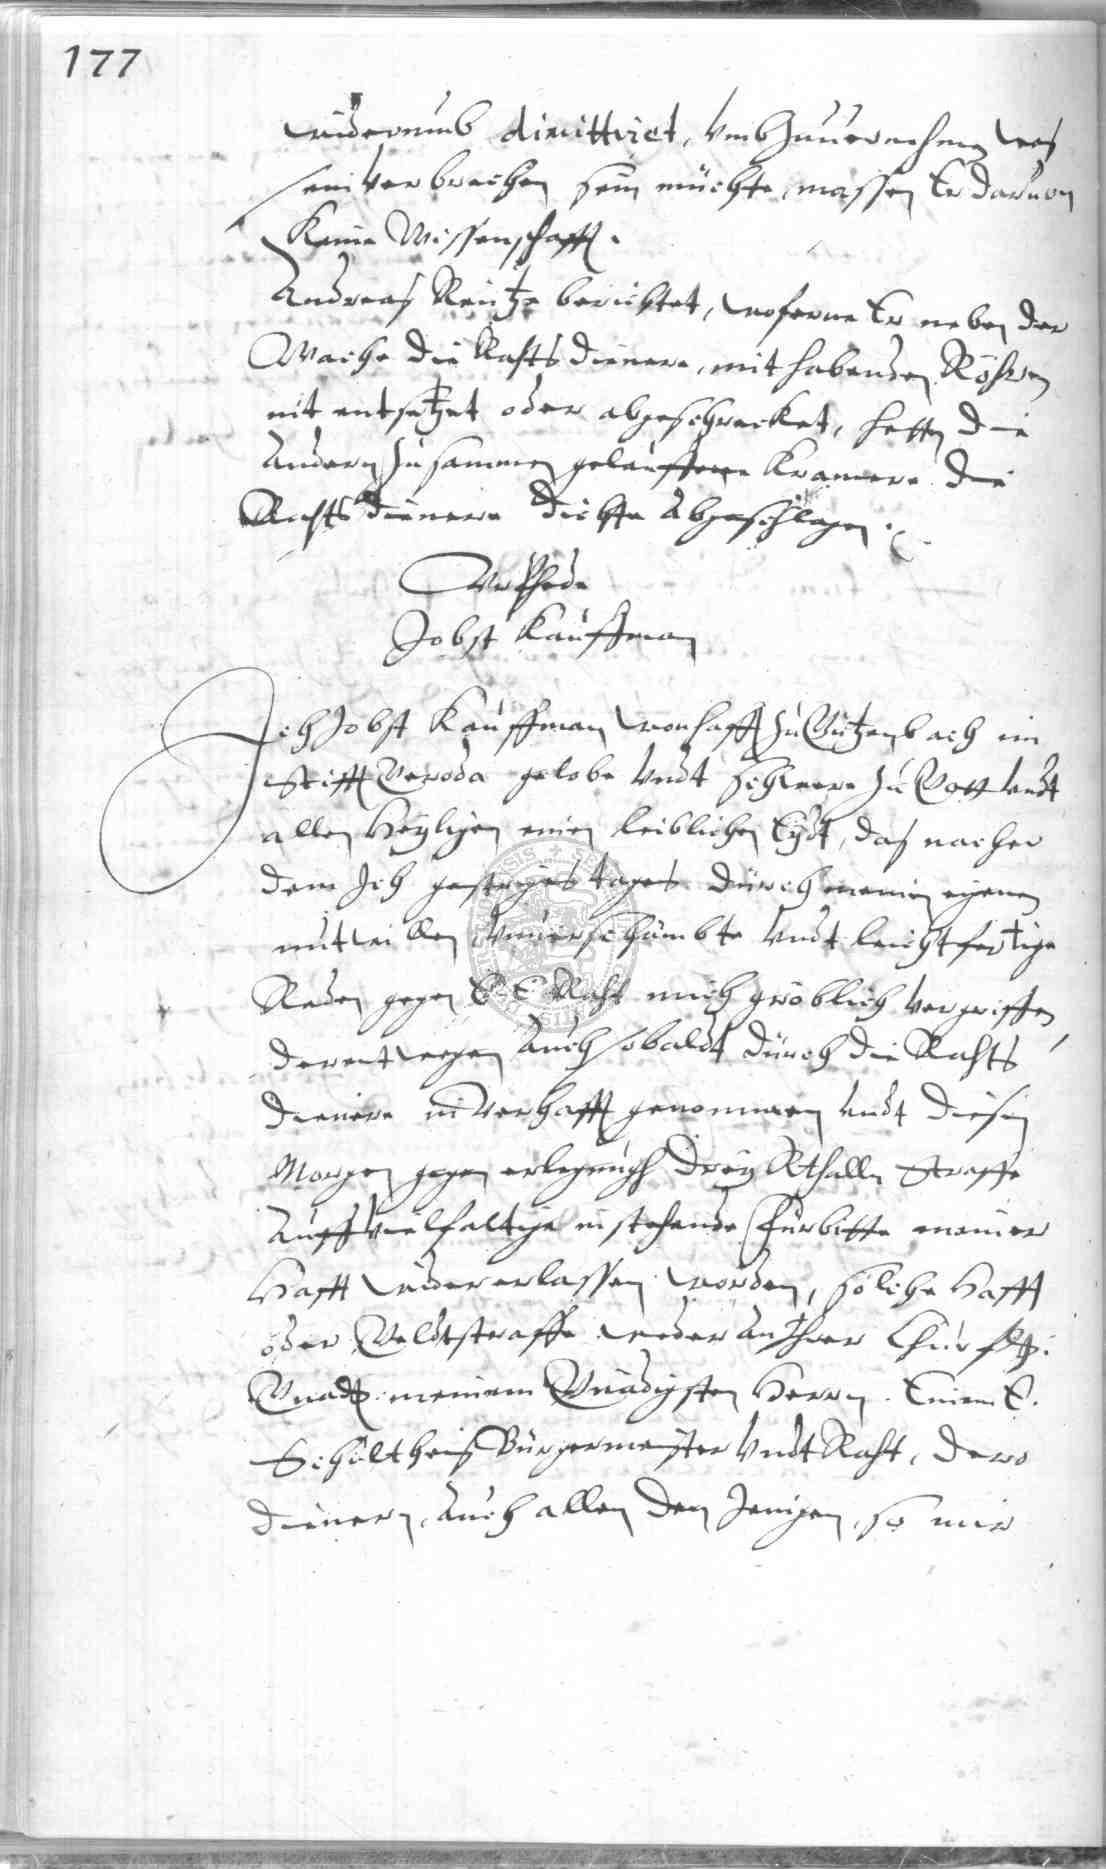 177
widerumb dimittiret, umb zuuernehmen was
sein verbrechen sein möchte, massen Er daruon
Keine Wissenschafft.
Andreas Reutze berichtet, woferne Er neben der
Wache die Rahts dienere, mit habenden Röhren
nit entsetzet oder abgeschrecket, hetten die
Andern zusammen gelauffene Kramere die
Rahts dienere dichte abgeschlagen.
Urphede
Jobst Kauffman
Ich Jobst Kauffman wonhafft zu im
Stifft gelobe undt schwere zu Gott undt
allen Heyligen einen leiblichen Eydt, das nacher
dem Ich gestriges tages durch meinen eigenen
mutwillen unuerschämbte undt leichtfertige
Reden gegen E. E. Raht mich gröblich vergriffen,
derentwegen auch sobaldt durch die Rahts
dienere in verhafft genommen undt diesen
Morgen gegen erlegungh drey Rthaller Straffe
Auff vielfaltige instehende Fürbitte meiner
Hafft wider erlassen worden, solche Hafft
oder Geldtstraffe weder an Ihrer Churfltz:
Gnad: meinem Gnädigsten Herrn. Einem E.
Schultheis Bürgermeister undt Raht, dero
dienern, auch allen den Jenigen, so mir